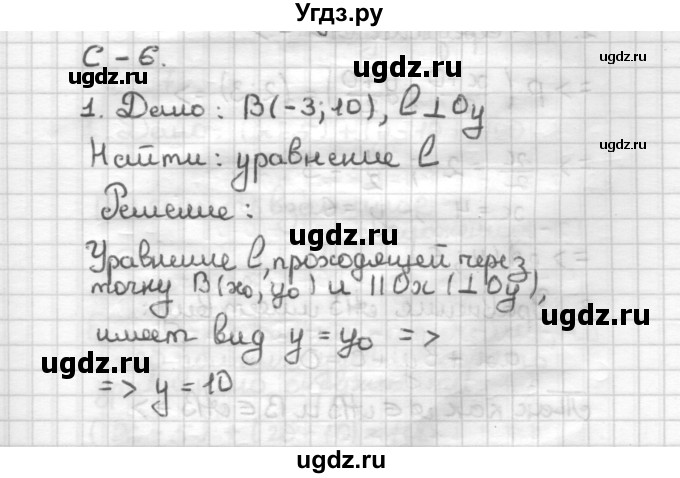 Угдз.ру
С - 6.
1. Дано: B(-3; 10), ℓ⊥Oy
Найти: уравнение ℓ
Решение:
Уравнение ℓ, проходящей через
точку B(x₀; y₀) и ||Ox (⊥Oy),
имеет вид y = y₀ =>
=> y = 10
ugdz.ru
ugdz.ru
ugdz.ru
ugdz.ru
ugdz.ru
ugdz.ru
ugdz.ru
ugdz.ru
ugdz.ru
ugdz.ru
ugdz.ru